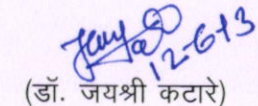 12-6-13
(डॉ. जयश्री कटारे)